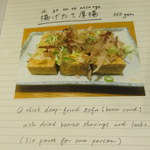 揚げたて厚揚
350 yen
Quick deep-fried tofu (bean curd)
with dried bonito shavings and leeks.
(Six pieces for one person)